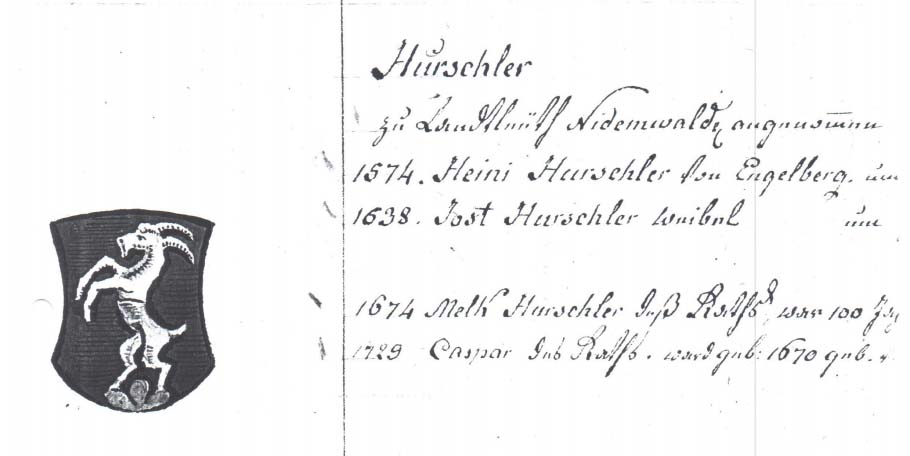 Hurschler
zu Landtleüth Nidemwald angenommen
1574. Heini Hurschler von Engelberg. um
1638. Jost Hurschler weibel um
1674 Melk Hurschler deß Raths, war 100
1729 Caspar des Raths. ward geb: 1670 geb.